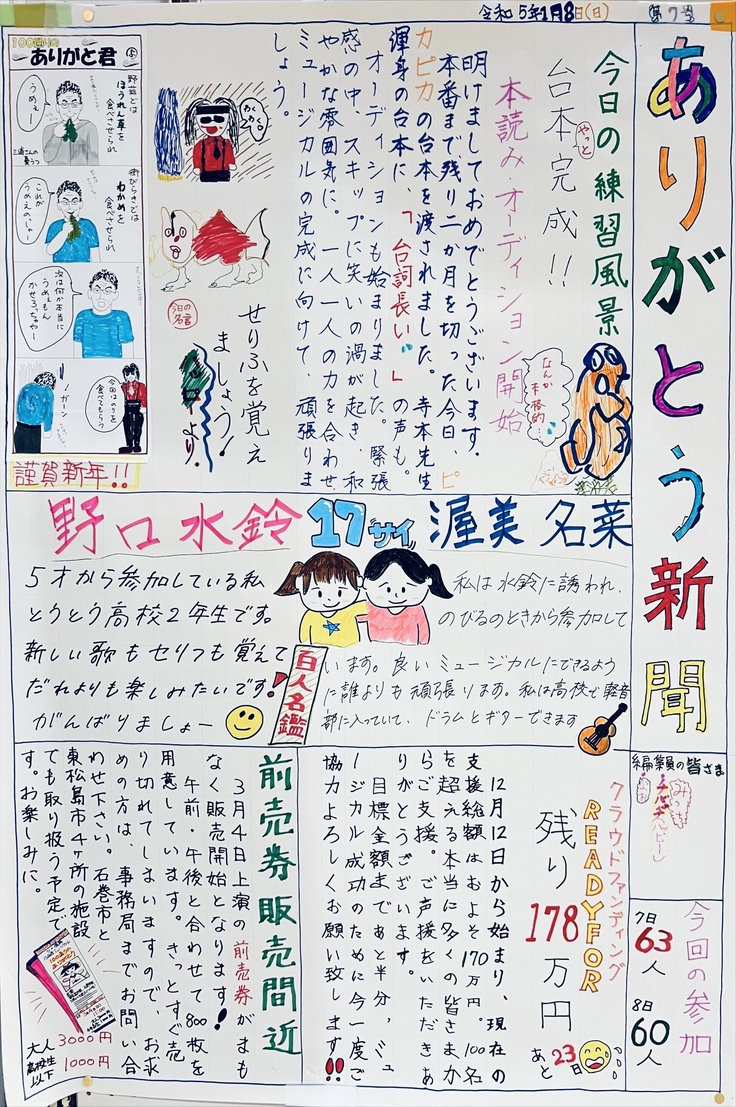 令和5年1月8日(日)
第7号
ありがとう新聞
今日の練習風景
台本やっと完成!!
本読み・オーディション開始
明けましておめでとうございます。
本番まで残り二か月を切った今日、ピ
カピカの台本を渡されました。寺本先生
渾身の台本に、「台詞長い💦」の声も。
オーディションも始まりました。緊張
感の中、スキップに笑いの渦が起き、和
やかな雰囲気に。一人一人の力を合わせ
ミュージカルの完成に向けて、頑張りま
しょう。
なんか
本格的…
わくわく。
今日の
名言
せりふを覚え
ましょう!
より。
ありがと君
野菜では
ほうれん草を
食べさせられ
うめぇー
わかめを
食べさせられ
これが
うめえのぃゃー
次は何か本当に
うめぇもん
かせろっちゃやー
今回はのりを
食べてもらう
ガーン
謹賀新年!!
野口水鈴 17サイ 渥美名菜
5才から参加している私
とうとう高校2年生です。
新しい歌もセリフも覚えて
だれよりも楽しみたいです!
がんばりましょー
百人名鑑
私は水鈴に誘われ、
のびるのときから参加して
います。良いミュージカルにできるよう
に誰よりも頑張ります。私は高校で軽音
部に入っていて、ドラムとギターできます
編集員の皆さま
今回の参加
7日
63人
8日
60人
クラウドファンディング
READYFOR
残り178万円
あと23日
12月12日から始まり現在の
支援総額はおよそ170万円。100名
を超える本当に多くの皆さまか
らご支援。ご声援をいただきあ
りがとうございます。
目標金額まであと半分、ミュ
ージカル成功のために今一度ご
協力よろしくお願い致します!!
前売券販売間近
3月4日上演の前売券がまも
なく販売開始となります!
午前・午後と合わせて800枚を
用意しています。きっとすぐ売
り切れてしまいますので、お求
めの方は、事務局までお問い合
わせ下さい。石巻市と
東松島市4ヶ所の施設
でも取り扱う予定で
す。お楽しみに。
大人 3000円
高校生以下 1000円